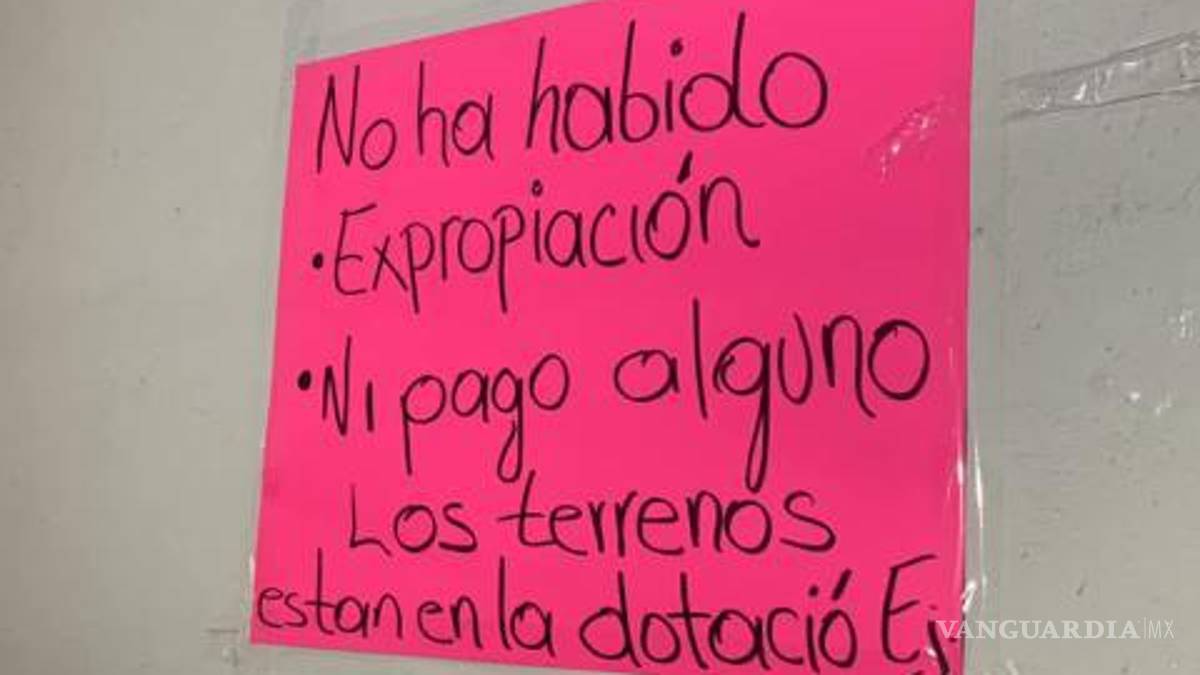 No ha habido
• Expropiación
• Ni pago alguno
Los terrenos
estan en la dotació Ej
VANGUARDIA|MX